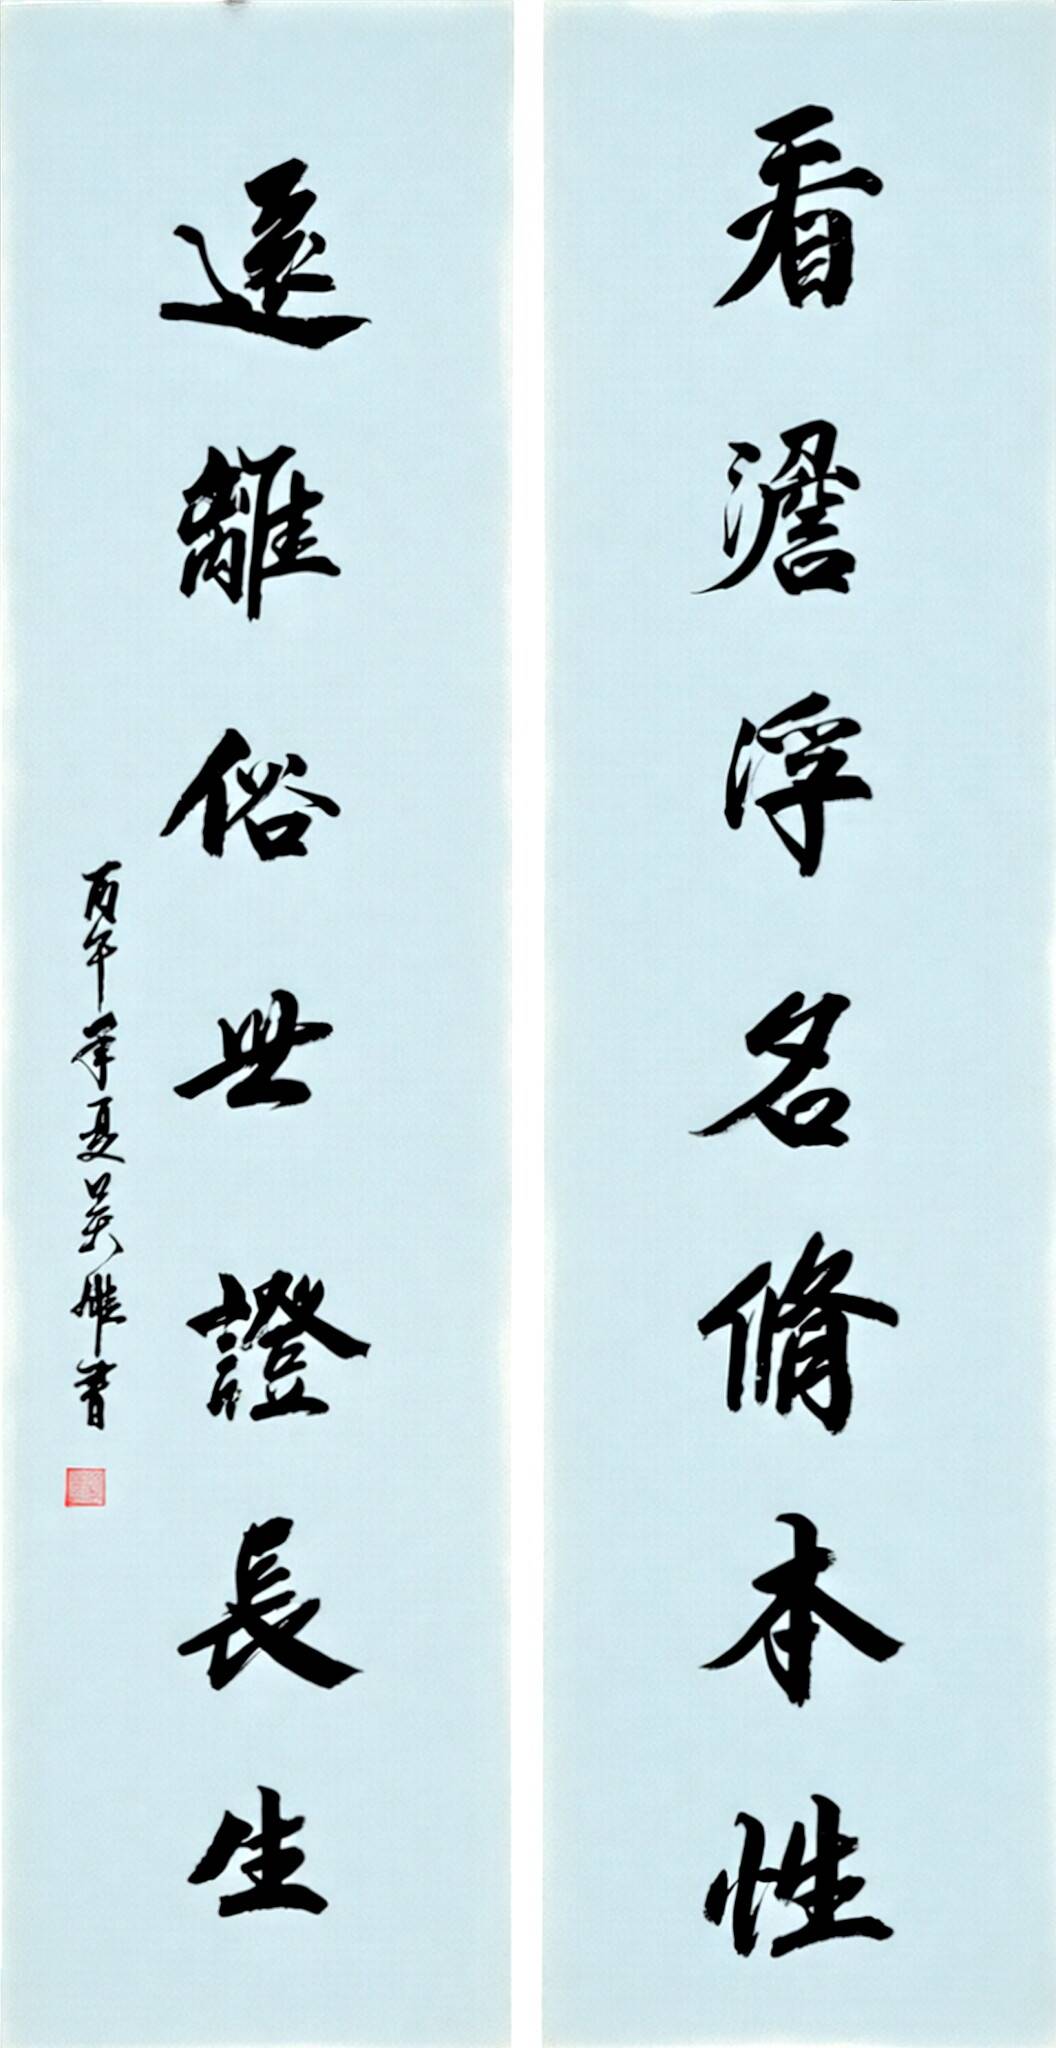 看澹浮名脩本性
遠離俗世證長生
丙午年夏吴維書